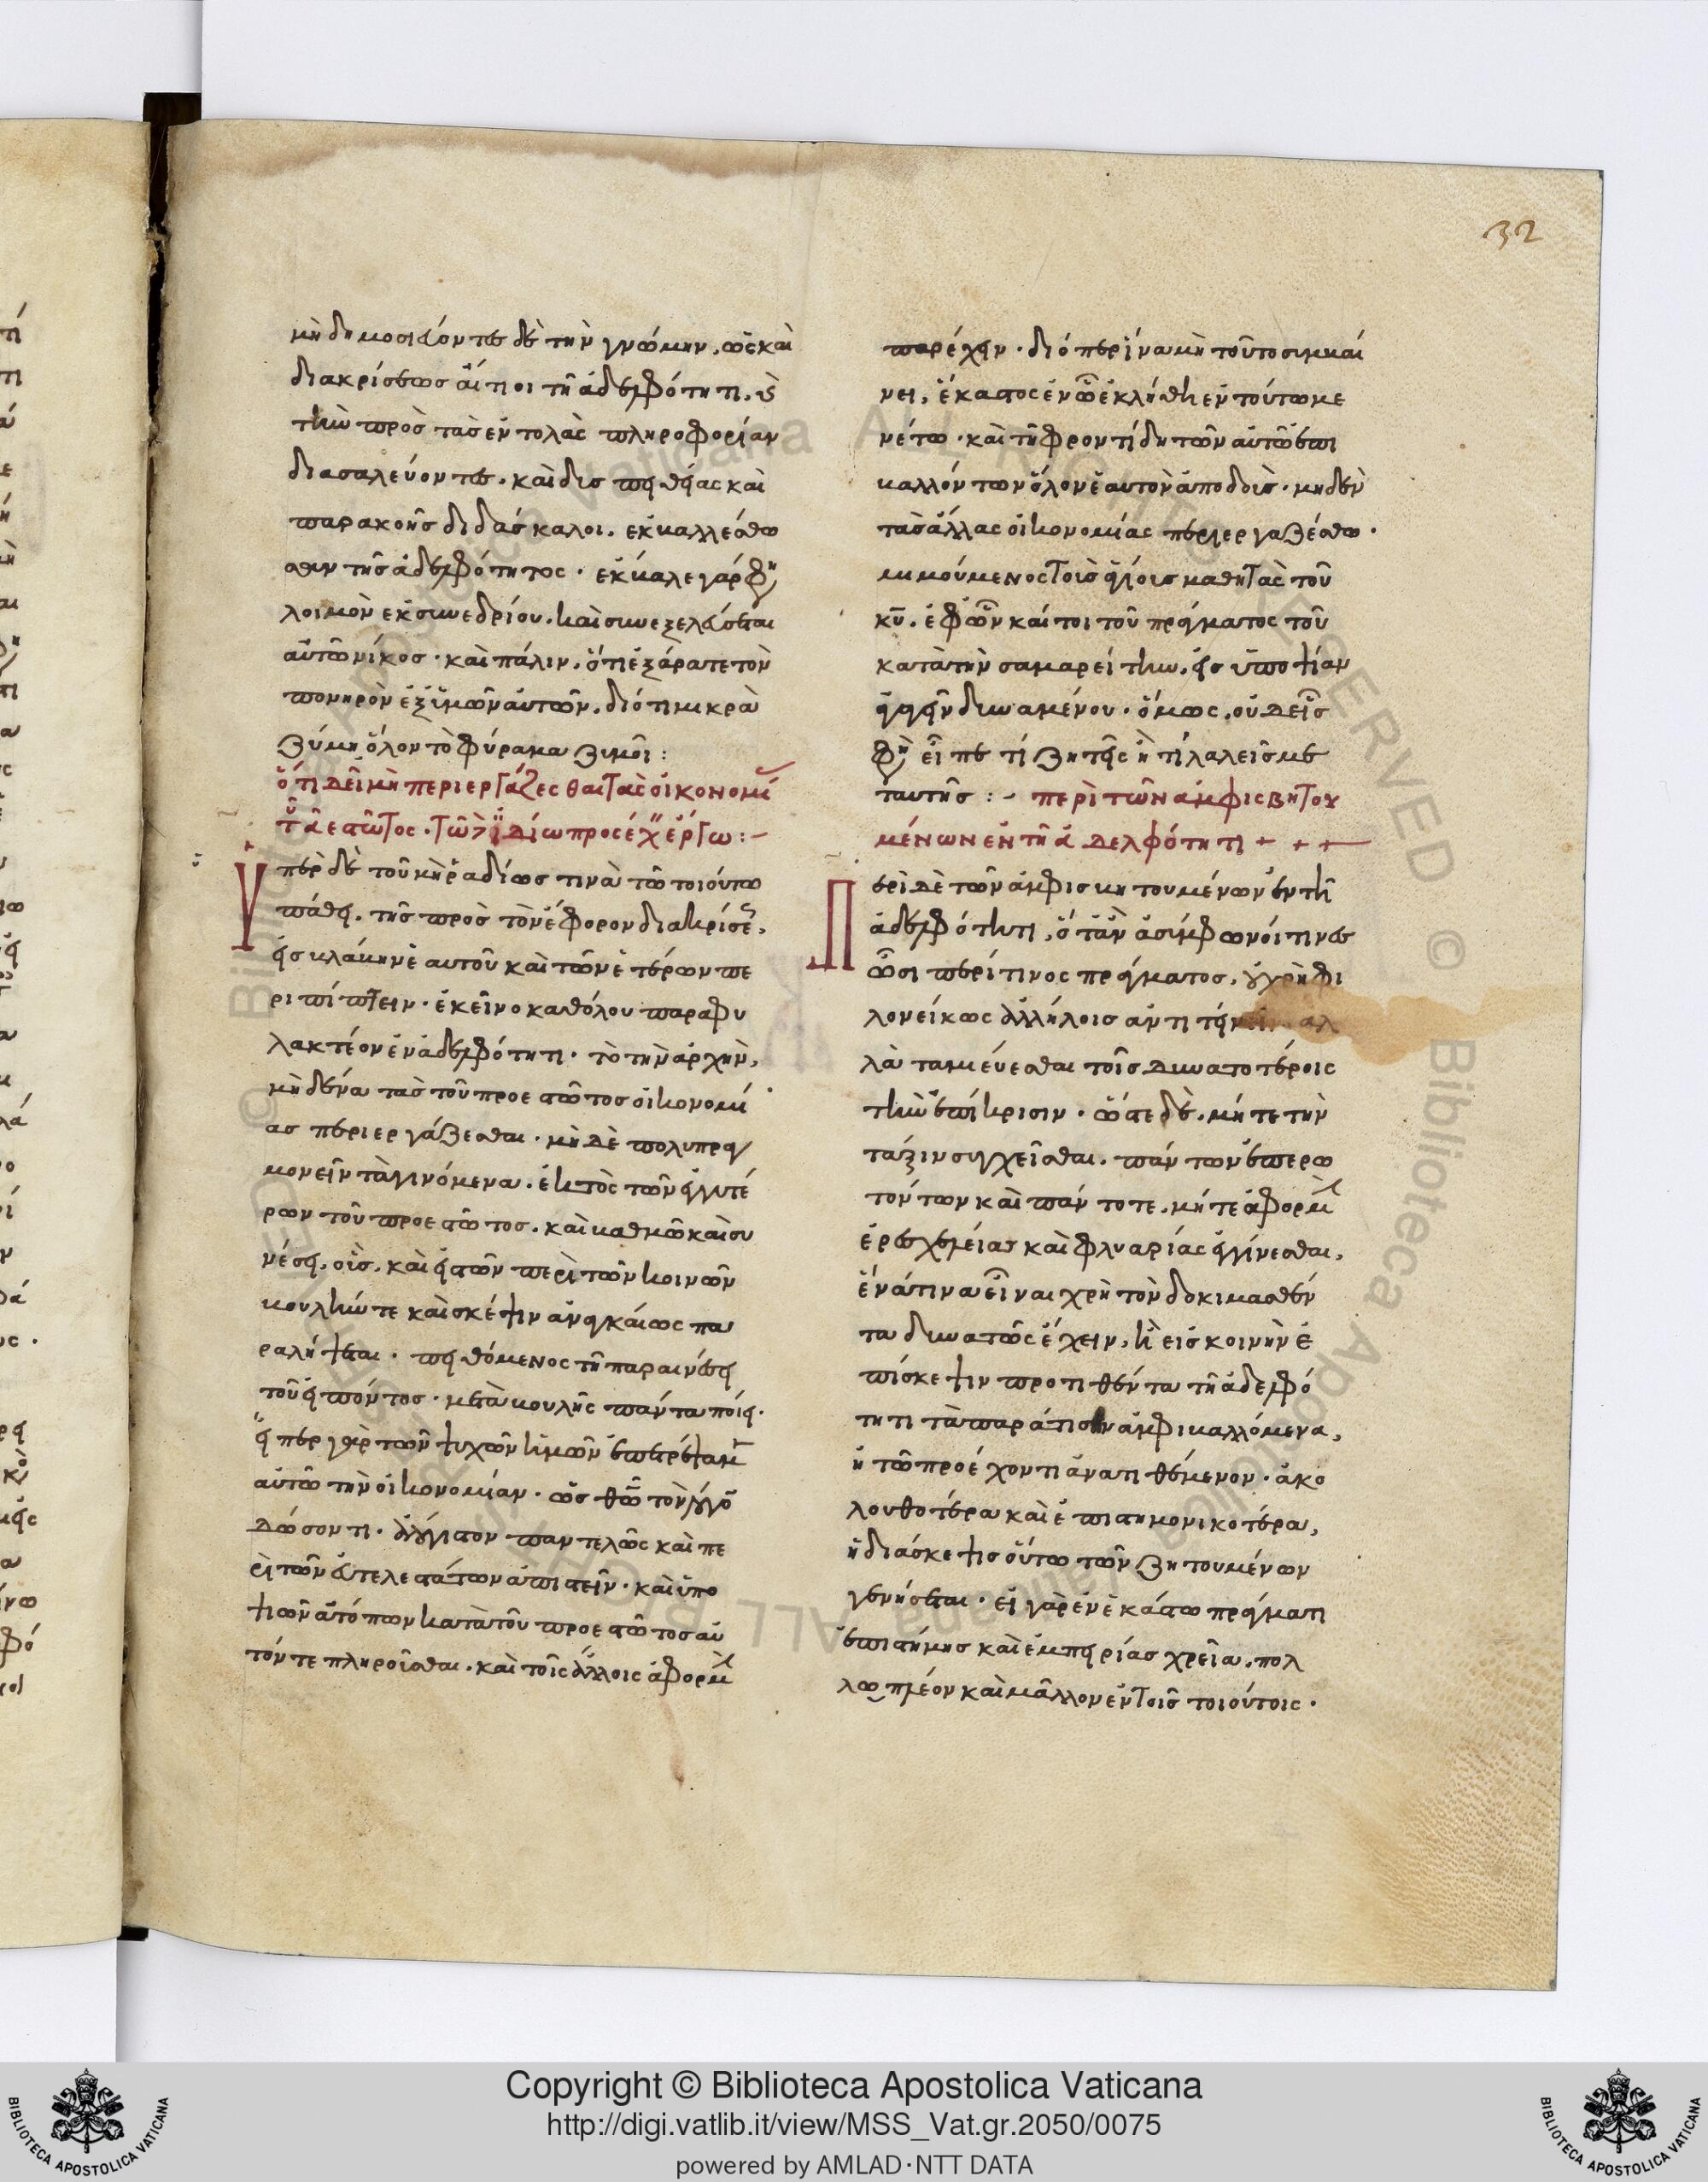 32
μὴ δημοσιεύοντες δὲ τὴν γνώμην, ὡς καὶ
διακρίσεως αἴτιοι τῆ ἀδελφότητι, καὶ
τὴν πρὸς τὰς ἐντολὰς πληροφορίαν
διασαλεύοντες. καὶ δὶς πειθείας καὶ
παρακοῆς διδάσκαλοι. ἐκβαλλέσθω
σαν τῆς ἀδελφότητος. ἔκβαλε γάρ φη
λοιμὸν ἐκ συνεδρίου. καὶ συνεξελεύσεται
αὐτῶ νίκος. καὶ πάλιν, ὅτι ἐξάρατε τὸν
πονηρὸν ἐξ ὑμῶν αὐτῶν. διότι μικρὰ
ζύμη ὅλον τὸ φύραμα ζυμοῖ:
ὅτι δεῖ μὴ περιεργάζεσθαι τὰς οἰκονομί
Ὑπὲρ δὲ τοῦ μὴ ῥαδίως τινὰ τῶ τοιούτω
πάθει, τῆς πρὸς τὸν ἔφορον διακρίσε,
εἰς βλάβην ἑαυτοῦ καὶ τῶν ἑτέρων πε
ριπίπτειν. ἐκεῖνο καθόλου παραφυ
λακτέον ἐν ἀδελφότητι. τὸ τὴν ἀρχὴν,
μηδένα τὰς τοῦ προεστῶτος οἰκονομί
ας περιεργάζεσθαι. μὴ δὲ πολυπραγ
μονεῖν τὰ γινόμενα. ἐκτὸς τῶν ἐγγυτέ
ρων τοῦ προεστῶτος. καὶ βαθμῶ καὶ συ
νέσει. οἷς. καὶ εἰς τῶν περὶ τῶν κοινῶν
βουλήν τε καὶ σκέψιν ἀναγκαίως πα
ραλήψεται. πειθόμενος τῆ παραινέσει
τοῦ εἰπόντος. μετὰ βουλῆς πάντα ποίει.
εἴπερ γὰρ τῶν ψυχῶν ἡμῶν ἐπετρέψαμ
αὐτῶ τὴν οἰκονομίαν. ὡς θῶ τὸν λόγο
δώσοντι. ἄλογιστον παντελῶς καὶ πε
ρὶ τῶν εὐτελεστάτων ἀπιστεῖν. καὶ ὑπο
ψιῶν ἀτόπων κατὰ τοῦ προεστῶτος αὐ
τόν τε πληροῦσθαι. καὶ τοῖς ἄλλοις ἀφορμ
παρέχειν. διόπερ ἵνα μὴ τοῦτο συμβαί
νει, ἕκαστος ἐν ὧ ἐκλήθη ἐν τούτω με
νέτω. καὶ τῆ φροντίδι τῶν αὐτῶ ἐπι
βαλλόντων ὅλον ἑαυτὸν ἀποδοὺς. μηδὲν
τὰς ἄλλας οἰκονομίας περιεργαζέσθω.
μιμούμενος τοὺς ἁγίους μαθητὰς τοῦ
κυ. ἐφ' ὧν καίτοι τοῦ πράγματος τοῦ
κατὰ τὴν σαμαρείτην, εἰς ὑποψίαν
ἄγειν δυναμένου. ὅμως, οὐδεὶς
φη εἶπε τί ζητεῖς ἢ τί λαλεῖς μετ
ταύτης:- περὶ τῶν ἀμφισβητου
μένων ἐν τῆ ἀδελφότητι + + +
Περὶ δὲ τῶν ἀμφισβητουμένων ἐν τῆ
ἀδελφότητι, ὅτ' ἂν ἀσύμφωνοί τινες
ὦσι περί τινος πράγματος, οὐ χρὴ φι
λονείκως ἀλλήλοις ἀντιτείνειν. ἀλ
λὰ ταμιεύεσθαι τοῖς δυνατοτέροις
τὴν ἐπίκρισιν. ὥστε δὲ. μήτε τὴν
τάξιν συγχεῖσθαι. πάντων ἐπερω
τόντων καὶ πάντοτε. μήτε ἀφορμ
ἐρεσχελείας καὶ φλυαρίας ἐγγίνεσθαι,
ἕνά τινα εἶναι χρὴ τὸν δοκιμασθέν
τα δυνατῶς ἔχειν, ἢ εἰς κοινὴν ἐ
πίσκεψιν προτιθέντα τῆ ἀδελφό
τητι τὰ παρά τισιν ἀμφιβαλλόμενα,
ἢ τῶ προέχοντι ἀνατιθέμενον. ἀκο
λουθοτέρα καὶ ἐπιστημονικοτέρα,
ἡ διάσκεψις οὕτω τῶν ζητουμένων
γενήσεται. εἰ γὰρ ἐν ἑκάστω πράγματι
ἐπιστήμης καὶ ἐμπειρίας χρεία. πολ
λῶ πλέον καὶ μᾶλλον ἐν τοῖς τοιούτοις.
Copyright © Biblioteca Apostolica Vaticana
http://digi.vatlib.it/view/MSS_Vat.gr.2050/0075
powered by AMLAD·NTT DATA
BIBLIOTECA APOSTOLICA VATICANA
BIBLIOTECA APOSTOLICA VATICANA